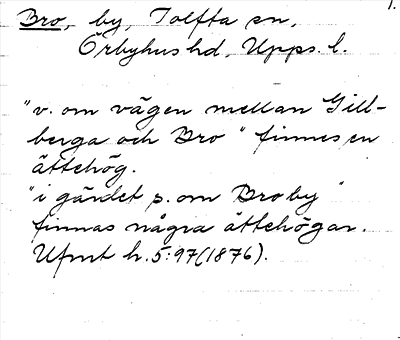 1.
Bro, by, Tolfta sn,
Örbyhus hd, Upps. l.
"v. om vägen mellan Gill-
berga och Bro" finnes en
ättehög.
"i gärdet s. om Bro by"
finnas några ättehögar.
Ufmt h. 5:97 (1876).